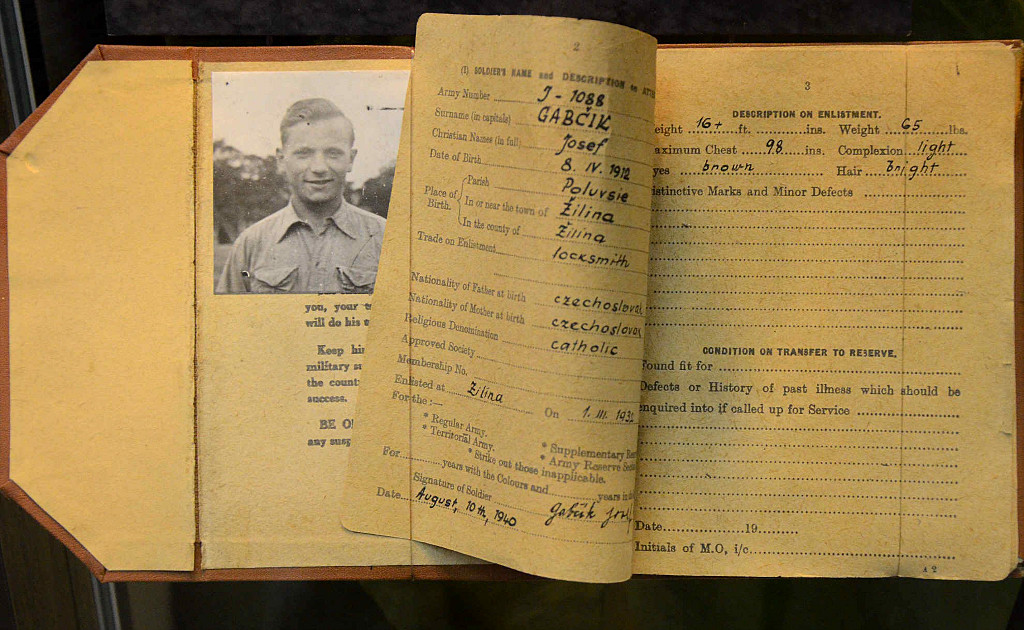 you, your
will do his
Keep
military
the
success.
BE
any
2
(I) SOLDIER'S NAME and DESCRIPTION on
Army Number J-1088
Surname (in capitals) GABČIK
Christian Names (in full) Josef
Date of Birth 8. IV. 1912
Place of Birth.
Parish Poluvsie
In or near the town of Žilina
In the county of Žilina
Trade on Enlistment locksmith
Nationality of Father at birth czechoslovak
Nationality of Mother at birth czechoslovak
Religious Denomination catholic
Approved Society
Membership No.
Enlisted at Žilina On 1. III.
For the :—
* Regular Army. * Supplementary
* Territorial Army. * Army Reserve
* Strike out those inapplicable.
For years with the Colours and years in
Signature of Soldier Gabčik
Date August, 10th, 1940
3
DESCRIPTION ON ENLISTMENT.
eight 16+ ft. ins. Weight 65 lbs.
aximum Chest 98 ins. Complexion light
yes brown Hair bright
istinctive Marks and Minor Defects
CONDITION ON TRANSFER TO RESERVE.
ound fit for
Defects or History of past illness which should be
enquired into if called up for Service
Date 19
Initials of M.O, i/c
A 2